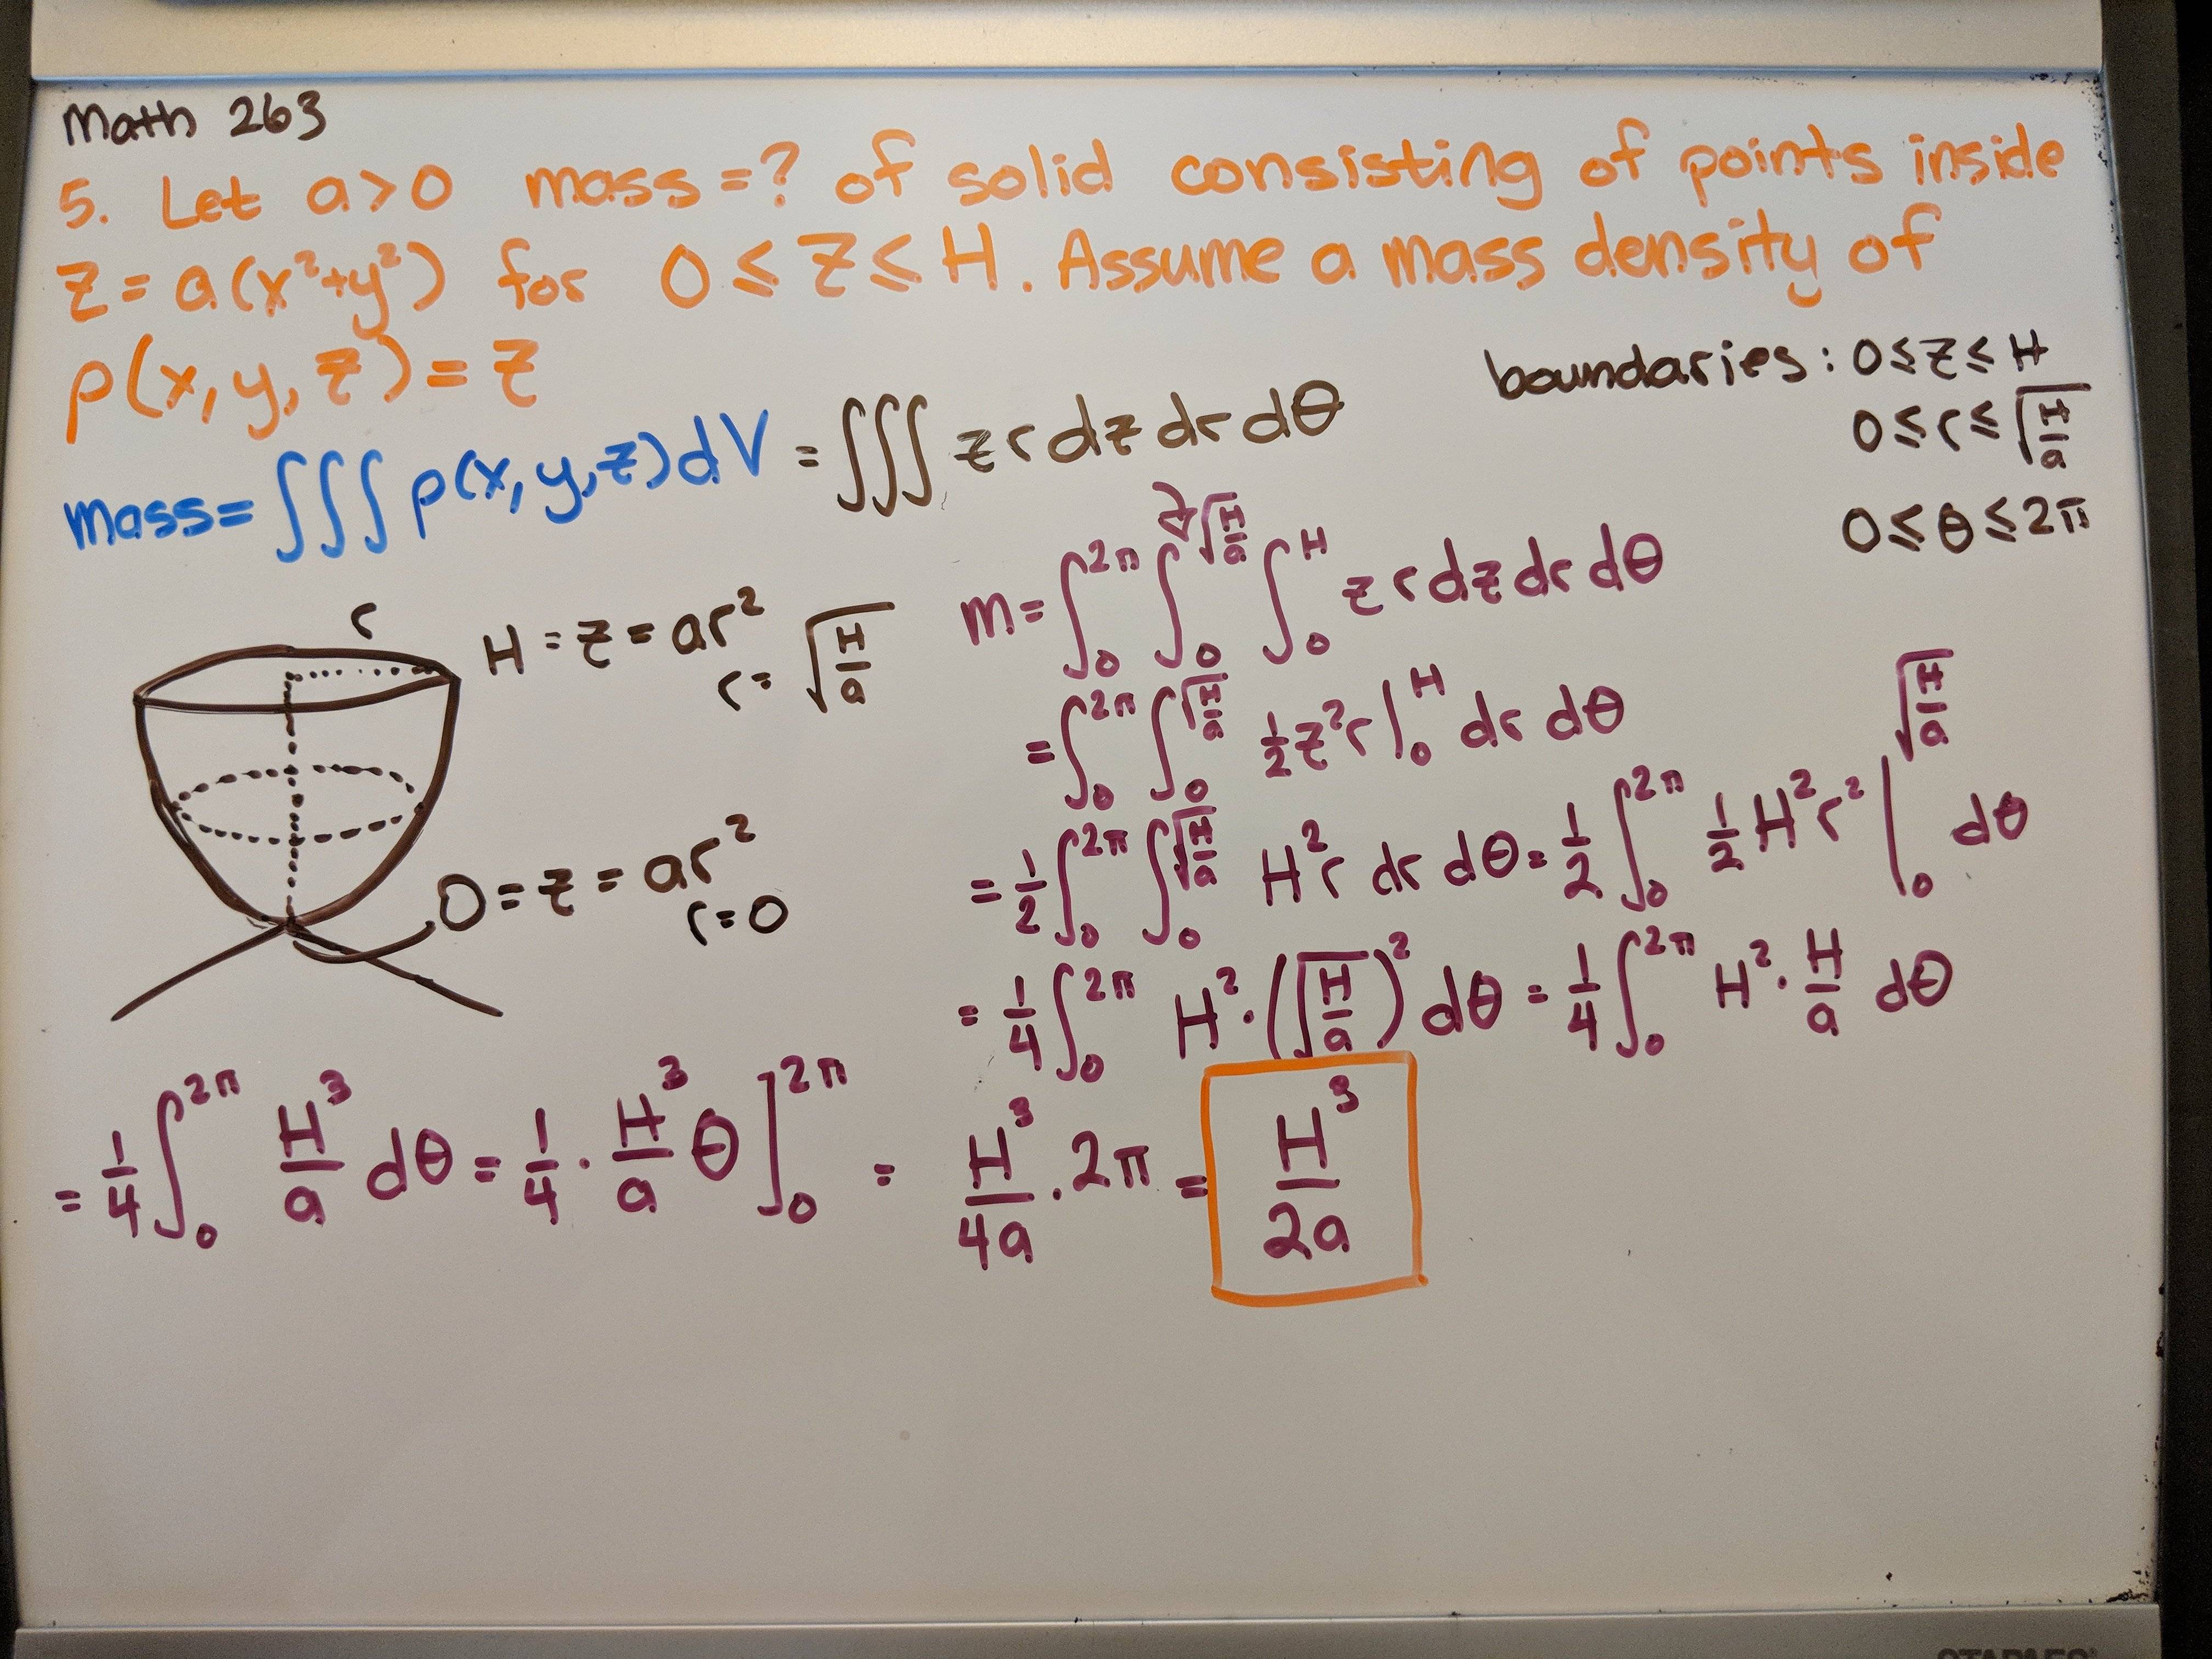 Math 263
5. Let a>0 mass=? of solid consisting of points inside
z=a(x²+y²) for 0≤z≤H. Assume a mass density of
ρ(x,y,z)=z
boundaries: 0≤z≤H
0≤r≤√(H/a)
0≤θ≤2π
mass=∭ρ(x,y,z)dV=∭zrdzdrdθ
r
H=z=ar²
r=√(H/a)
0=z=ar²
r=0
m=∫₀^2π ∫₀^√(H/a) ∫₀^H zrdzdrdθ
=∫₀^2π ∫₀^√(H/a) ½z²r|₀^H drdθ
=½∫₀^2π ∫₀^√(H/a) H²r dr dθ=½∫₀^2π ½H²r²|₀^√(H/a) dθ
=¼∫₀^2π H²·(√(H/a))² dθ=¼∫₀^2π H²·H/a dθ
=¼∫₀^2π H³/a dθ=¼·H³/a θ]₀^2π = H³/4a·2π=H³/2a